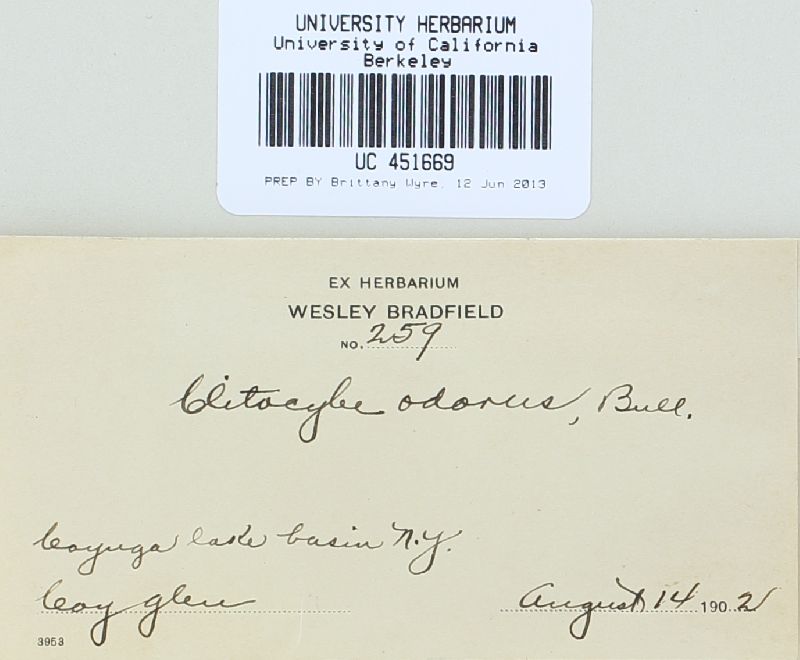 UNIVERSITY HERBARIUM
University of California
Berkeley
UC 451669
PREP BY Brittany Wyre, 12 Jun 2013
EX HERBARIUM
WESLEY BRADFIELD
NO. 259
Clitocybe odorus, Bull.
Cayuga lake basin N.Y.
Coy glen
August 14 1902
3953